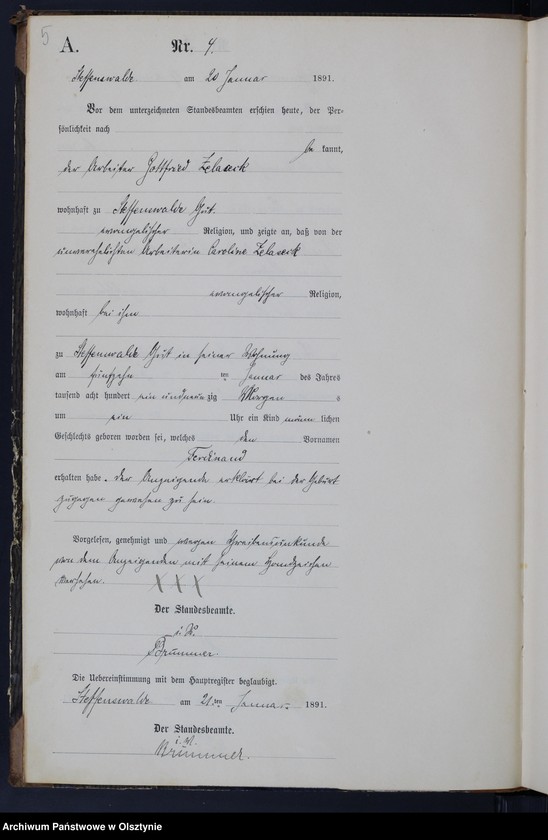 5
A. Nr. 4.
Steffenswalde am 20 Januar 1891.
Vor dem unterzeichneten Standesbeamten erschien heute, der Per-
sönlichkeit nach
be kannt,
der Arbeiter Gottfried Zelasek
wohnhaft zu Steffenswalde Gut.
evangelischer Religion, und zeigte an, daß von der
unverehelichten Arbeiterin Caroline Zelasek
evangelischer Religion,
wohnhaft bei ihm
zu Steffenswalde Gut in seiner Wohnung
am fünfzehn ten Januar des Jahres
tausend acht hundert ein und neun zig Morgen s
um ein Uhr ein Kind männ lichen
Geschlechts geboren worden sei, welches den Vornamen
Ferdinand
erhalten habe. Der Anzeigende erklärt bei der Geburt
zugegen gewesen zu sein.
Vorgelesen, genehmigt und wegen Schreibensunkunde
von dem Anzeigenden mit seinem Handzeichen
versehen. XXX
Der Standesbeamte.
i. V.
Brummer
Die Uebereinstimmung mit dem Hauptregister beglaubigt.
Steffenswalde am 21ten Januar 1891.
Der Standesbeamte.
i. V.
Brummer.
Archiwum Państwowe w Olsztynie